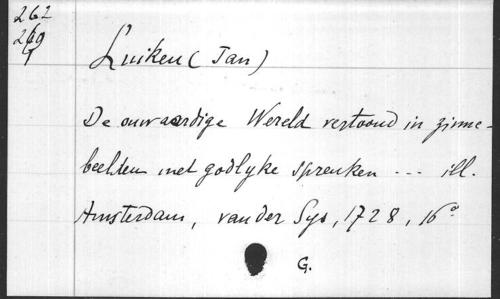 262
Luiken (Jan)
De onwaardige Wereld vertoond in zinne-
beelden met godlyke spreuken --- ill.
Amsterdam, van der Sys, 1728, 16°
G.